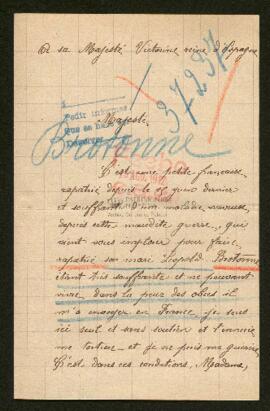 A sa Majesté Victoria reine d'Espagne
37257
Pedir informes
Majesté
Brotonne
C'est une petite française
rapatriée depuis le 15 juin dernier
et souffrante d'une maladie nerveuse
depuis cette maudite guerre, qui
vient vous implorer pour faire
rapatrier son mari Léopold Brotonne
étant très souffrante et ne pouvant
vivre dans la peur des obus il
m'a envoyer en France je suis
ici seul et sans soutien et l'ennui
me torture et je ne puis me guérir
C'est dans ces conditions, Madame,